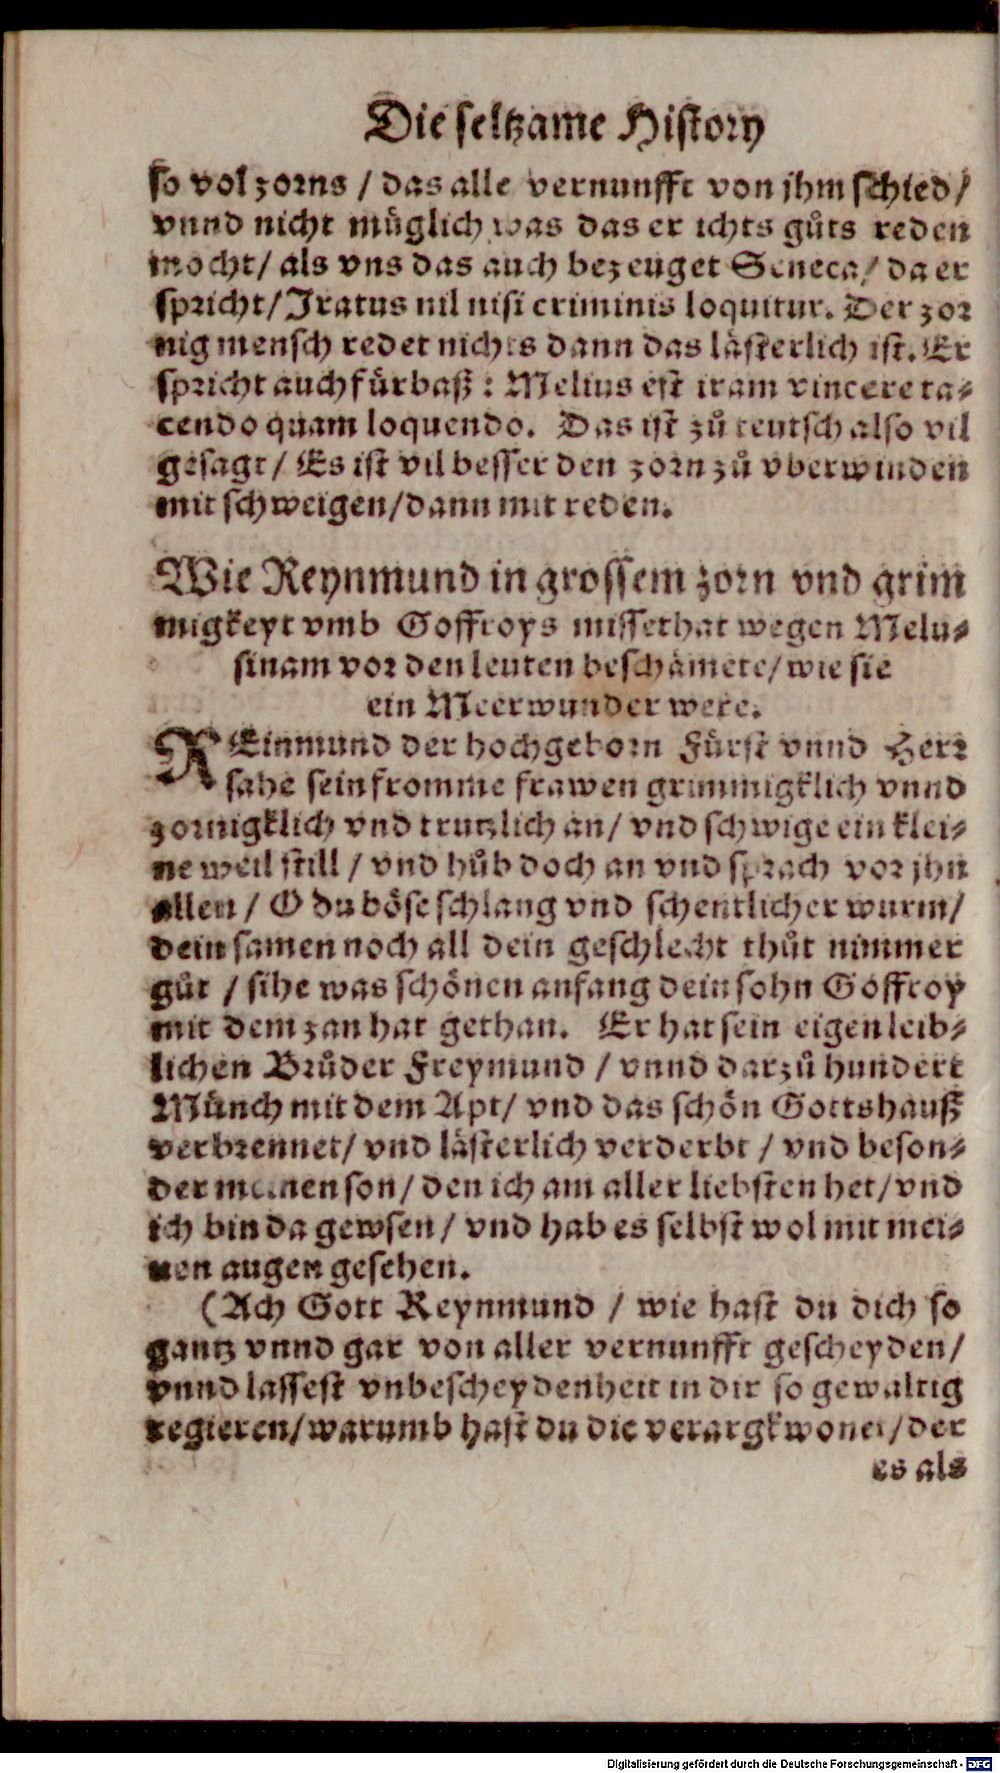 Die seltzame History
so vol zorns / das alle vernunfft von jhm schied /
vnnd nicht müglich was das er ichts gůts reden
mocht / als vns das auch bezeuget Seneca / da er
spricht / Iratus nil nisi criminis loquitur. Der zor
nig mensch redet nichts dann das lästerlich ist. Er
spricht auch fürbaß : Melius est iram vincere ta-
cendo quam loquendo. Das ist zů teutsch also vil
gesagt / Es ist vil besser den zorn zů vberwinden
mit schweigen / dann mit reden.
Wie Reynmund in grossem zorn vnd grim
migkeyt vmb Goffroys missethat wegen Melu-
sinam vor den leuten beschämete / wie sie
ein Meerwunder were.
REinmund der hochgeborn Fürst vnnd Herr
sahe sein fromme frawen grimmigklich vnnd
zornigklich vnd trutzlich an / vnd schwige ein klei-
ne weil still / vnd hůb doch an vnd sprach vor jhn
allen / O du böse schlang vnd schentlicher wurm /
dein samen noch all dein geschlecht thůt nimmer
gůt / sihe was schönen anfang dein sohn Goffroy
mit dem zan hat gethan. Er hat sein eigen leib-
lichen Brůder Freymund / vnnd darzů hundert
Münch mit dem Apt / vnd das schön Gottshauß
verbrennet / vnd lästerlich verderbt / vnd beson-
der meinen son / den ich am aller liebsten het / vnd
ich bin da gewsen / vnd hab es selbst wol mit mei-
nen augen gesehen.
(Ach Gott Reynmund / wie hast du dich so
gantz vnnd gar von aller vernunfft gescheyden /
vnnd lassest vnbescheydenheit in dir so gewaltig
regieren / warumb hast du die verargkwonet / der
es als
Digitalisierung gefördert durch die Deutsche Forschungsgemeinschaft - DFG